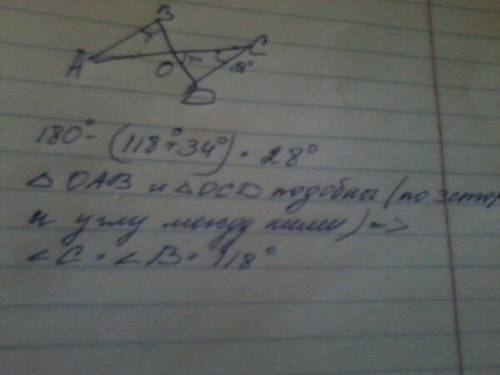 B
A
O
C
D
180° - (118° + 34°) = 28°
△ OAB и △ OCD подобны (по 3 стор
и углу между ними) =>
∠C = ∠B = 118°